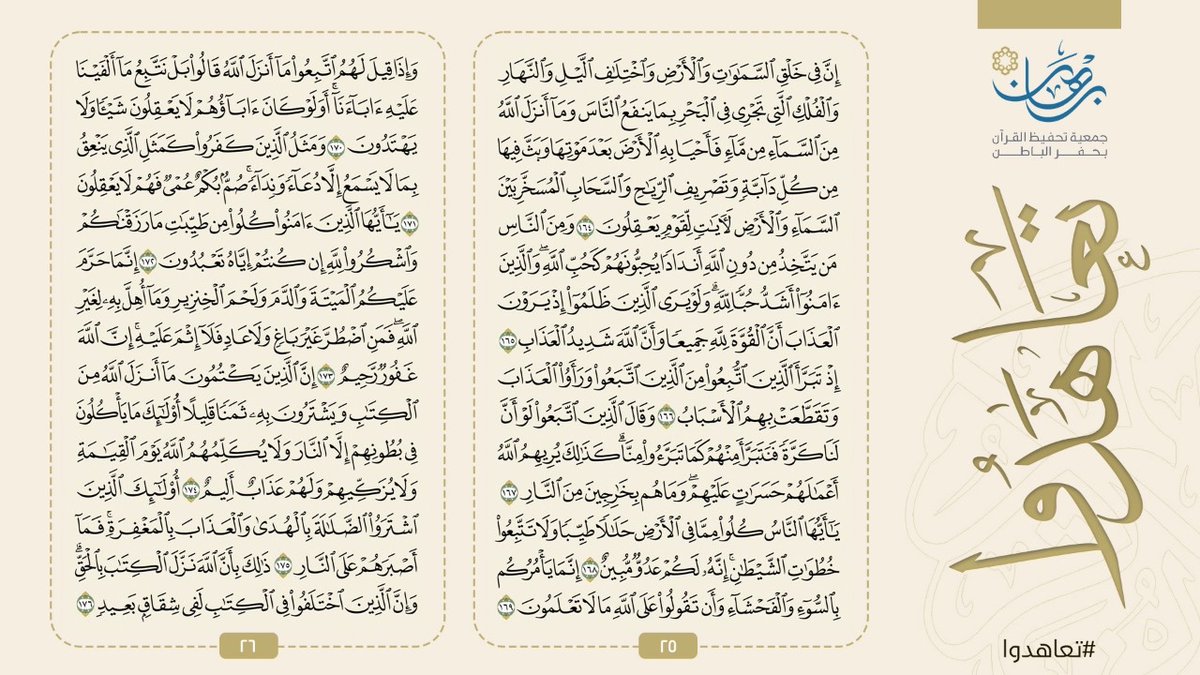 برهان
جمعية تحفيظ القرآن
بحفر الباطن
تعاهدوا
#تعاهدوا
إِنَّ فِي خَلْقِ ٱلسَّمَٰوَٰتِ وَٱلْأَرْضِ وَٱخْتِلَٰفِ ٱلَّيْلِ وَٱلنَّهَارِ
وَٱلْفُلْكِ ٱلَّتِي تَجْرِي فِي ٱلْبَحْرِ بِمَا يَنفَعُ ٱلنَّاسَ وَمَآ أَنزَلَ ٱللَّهُ
مِنَ ٱلسَّمَآءِ مِن مَّآءٍ فَأَحْيَا بِهِ ٱلْأَرْضَ بَعْدَ مَوْتِهَا وَبَثَّ فِيهَا
مِن كُلِّ دَآبَّةٍ وَتَصْرِيفِ ٱلرِّيَٰحِ وَٱلسَّحَابِ ٱلْمُسَخَّرِ بَيْنَ
ٱلسَّمَآءِ وَٱلْأَرْضِ لَأٓيَٰتٍ لِّقَوْمٍ يَعْقِلُونَ ١٦٤ وَمِنَ ٱلنَّاسِ
مَن يَتَّخِذُ مِن دُونِ ٱللَّهِ أَندَادًا يُحِبُّونَهُمْ كَحُبِّ ٱللَّهِۖ وَٱلَّذِينَ
ءَامَنُوٓا۟ أَشَدُّ حُبًّا لِّلَّهِۗ وَلَوْ يَرَى ٱلَّذِينَ ظَلَمُوٓا۟ إِذْ يَرَوْنَ
ٱلْعَذَابَ أَنَّ ٱلْقُوَّةَ لِلَّهِ جَمِيعًا وَأَنَّ ٱللَّهَ شَدِيدُ ٱلْعَذَابِ ١٦٥
إِذْ تَبَرَّأَ ٱلَّذِينَ ٱتُّبِعُوا۟ مِنَ ٱلَّذِينَ ٱتَّبَعُوا۟ وَرَأَوُا۟ ٱلْعَذَابَ
وَتَقَطَّعَتْ بِهِمُ ٱلْأَسْبَابُ ١٦٦ وَقَالَ ٱلَّذِينَ ٱتَّبَعُوا۟ لَوْ أَنَّ
لَنَا كَرَّةً فَنَتَبَرَّأَ مِنْهُمْ كَمَا تَبَرَّءُوا۟ مِنَّاۗ كَذَٰلِكَ يُرِيهِمُ ٱللَّهُ
أَعْمَٰلَهُمْ حَسَرَٰتٍ عَلَيْهِمْۖ وَمَا هُم بِخَٰرِجِينَ مِنَ ٱلنَّارِ ١٦٧
يَٰٓأَيُّهَا ٱلنَّاسُ كُلُوا۟ مِمَّا فِي ٱلْأَرْضِ حَلَٰلًا طَيِّبًا وَلَا تَتَّبِعُوا۟
خُطُوَٰتِ ٱلشَّيْطَٰنِۚ إِنَّهُۥ لَكُمْ عَدُوٌّ مُّبِينٌ ١٦٨ إِنَّمَا يَأْمُرُكُم
بِٱلسُّوٓءِ وَٱلْفَحْشَآءِ وَأَن تَقُولُوا۟ عَلَى ٱللَّهِ مَا لَا تَعْلَمُونَ ١٦٩
٢٥
وَإِذَا قِيلَ لَهُمُ ٱتَّبِعُوا۟ مَآ أَنزَلَ ٱللَّهُ قَالُوا۟ بَلْ نَتَّبِعُ مَآ أَلْفَيْنَا
عَلَيْهِ ءَابَآءَنَآۗ أَوَلَوْ كَانَ ءَابَآؤُهُمْ لَا يَعْقِلُونَ شَيْـًٔا وَلَا
يَهْتَدُونَ ١٧٠ وَمَثَلُ ٱلَّذِينَ كَفَرُوا۟ كَمَثَلِ ٱلَّذِي يَنْعِقُ
بِمَا لَا يَسْمَعُ إِلَّا دُعَآءً وَنِدَآءًۚ صُمٌّۢ بُكْمٌ عُمْيٌ فَهُمْ لَا يَعْقِلُونَ
١٧١ يَٰٓأَيُّهَا ٱلَّذِينَ ءَامَنُوا۟ كُلُوا۟ مِن طَيِّبَٰتِ مَا رَزَقْنَٰكُمْ
وَٱشْكُرُوا۟ لِلَّهِ إِن كُنتُمْ إِيَّاهُ تَعْبُدُونَ ١٧٢ إِنَّمَا حَرَّمَ
عَلَيْكُمُ ٱلْمَيْتَةَ وَٱلدَّمَ وَلَحْمَ ٱلْخِنزِيرِ وَمَآ أُهِلَّ بِهِۦ لِغَيْرِ
ٱللَّهِۖ فَمَنِ ٱضْطُرَّ غَيْرَ بَاغٍ وَلَا عَادٍ فَلَآ إِثْمَ عَلَيْهِۚ إِنَّ ٱللَّهَ
غَفُورٌ رَّحِيمٌ ١٧٣ إِنَّ ٱلَّذِينَ يَكْتُمُونَ مَآ أَنزَلَ ٱللَّهُ مِنَ
ٱلْكِتَٰبِ وَيَشْتَرُونَ بِهِۦ ثَمَنًا قَلِيلًا أُو۟لَٰٓئِكَ مَا يَأْكُلُونَ
فِي بُطُونِهِمْ إِلَّا ٱلنَّارَ وَلَا يُكَلِّمُهُمُ ٱللَّهُ يَوْمَ ٱلْقِيَٰمَةِ
وَلَا يُزَكِّيهِمْ وَلَهُمْ عَذَابٌ أَلِيمٌ ١٧٤ أُو۟لَٰٓئِكَ ٱلَّذِينَ
ٱشْتَرَوُا۟ ٱلضَّلَٰلَةَ بِٱلْهُدَىٰ وَٱلْعَذَابَ بِٱلْمَغْفِرَةِۚ فَمَآ
أَصْبَرَهُمْ عَلَى ٱلنَّارِ ١٧٥ ذَٰلِكَ بِأَنَّ ٱللَّهَ نَزَّلَ ٱلْكِتَٰبَ بِٱلْحَقِّۗ
وَإِنَّ ٱلَّذِينَ ٱخْتَلَفُوا۟ فِي ٱلْكِتَٰبِ لَفِي شِقَاقٍۭ بَعِيدٍ ١٧٦
٢٦